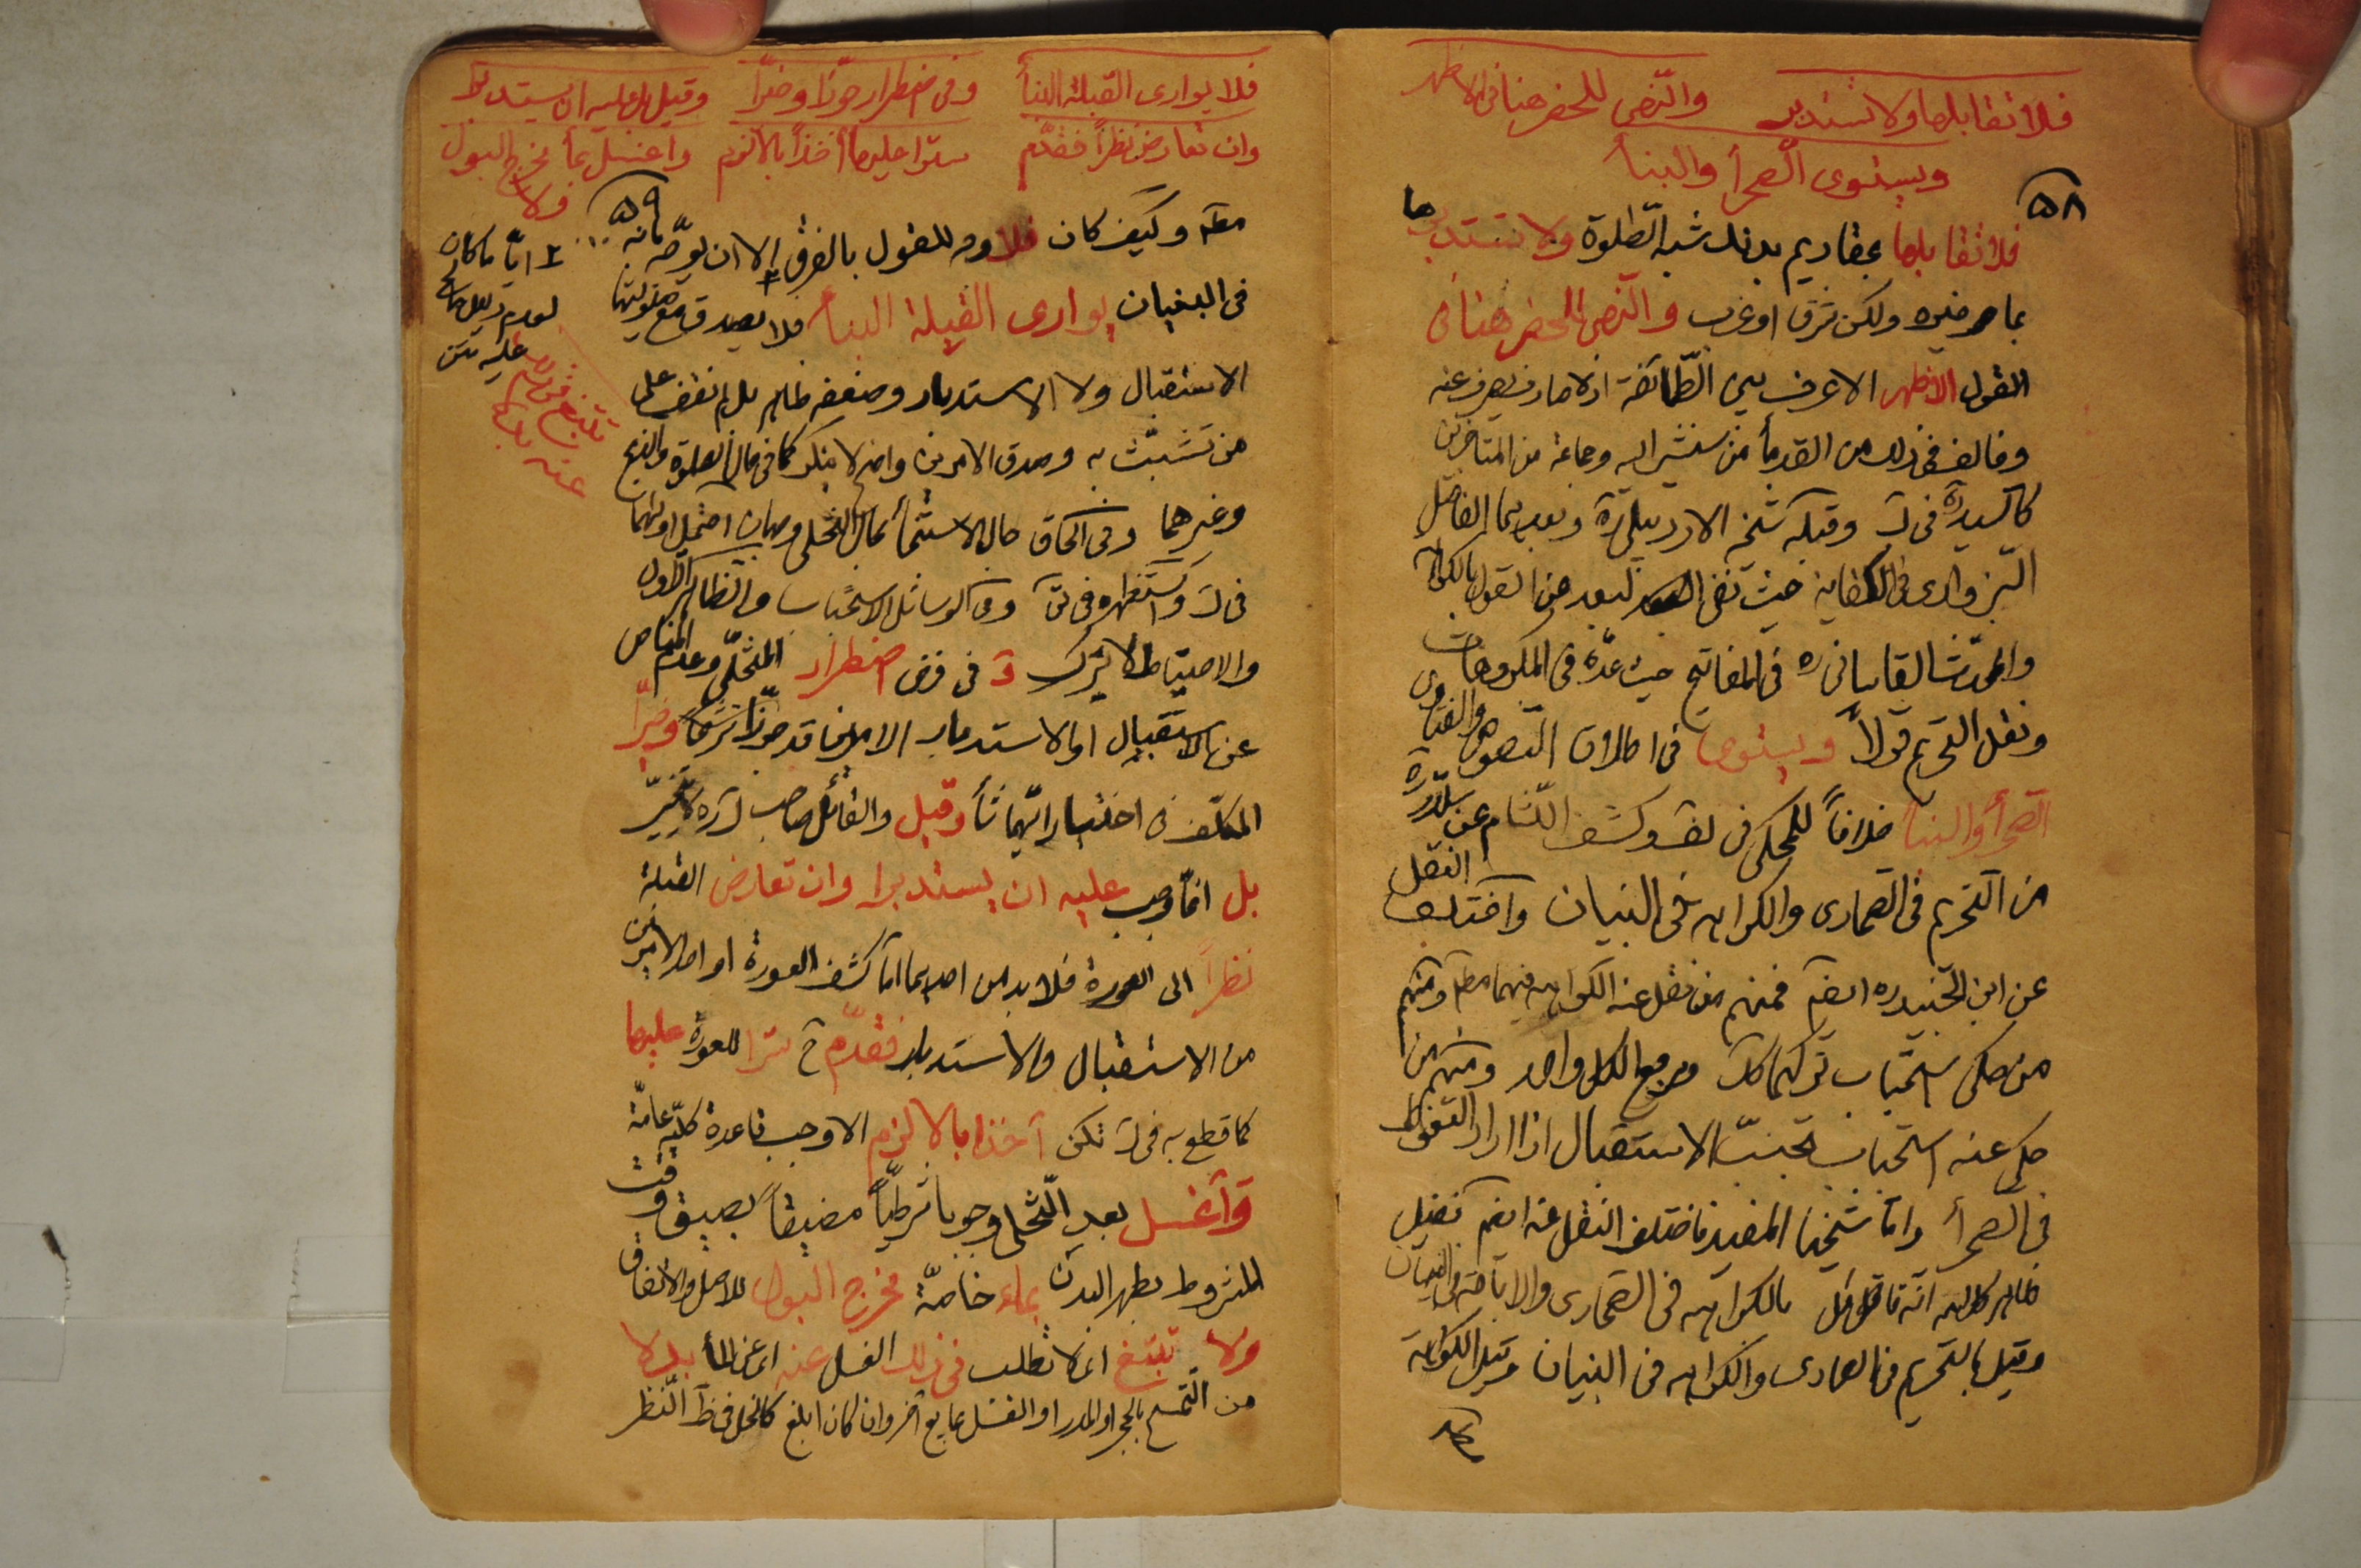 فلا تقابلها ولا تستدبر والنهى للحضر هنا فى الاظهر
ويستوى الصحرأ والبنأ
۵۸
فلا تقابلها بمقاديم بدنك شبه الصلوة ولا تستدبرها
بما هو منه ولكن شرق او غرب والنهى للحضر هنا فى
القول الاظهر الاعرف بين الطائفة اذ لا صارف يصرف عنه
وخالف فى ذلك من القدمأ من سنشير اليه وجماعة من المتاخرين
كالسيد ره فى ك وقبله شيخه الاردبيلى ره وبعدهما الفاضل
السبزوارى فى الكفاية حيث نفى البعد عن القول بالكراهة
والمحدث القاسانى ره فى المفاتيح حيث عده فى المكروهات
ونقل التحريم قولاً ويستوى فى اطلاق النصوص والفتاوى
الصحرأ والبنأ خلافاً للمحكى فى لف وكشف اللثام عن سلار ره
من التحريم فى الصحارى والكراهه فى البنيان واختلف النقل
عن ابن الجنيد ره ايضم فمنهم من نقل عنه الكراهه فيهما مطم ومنهم
من حكى استحباب تركهما كك ومرجع الكل واحد ومنهم من
حكى عنه استحباب تجنب الاستقبال اذا اراد التغوط
فى الصحرأ واما شيخنا المفيد فاختلف النقل عنه ايضم فقيل
ظاهر كلامه انه قائل بالكراهه فى الصحارى والاباحة فى البنيان
وقيل بالتحريم فى الصحارى والكراهه فى البنيان وقيل الكراهة
فلا يوارى القبلة البنأ وفى اضطرار جوّزا وخيّرا وقيل بل عليه ان يستدبرا
وان تعارض نظراً فقدّم ستراً عليها أخذاً بالالزم واغسل بمأ مخرج البول
ولا
۵۹
مطم وكيف كان فلا وجه للقول بالفرق الا ان يوجّه بانه
فى البنيان يوارى القبلة البنأ فلا يصدق مع حيلولتها
الاستقبال ولا الاستدبار وضعفه ظاهر بل لم نقف على
من تشبّث به وصدق الامرين واضح لا ينكر كما فى حال الصلوة والذبح
وغيرهما وفى الحاق حال الاستنجأ بحال التخلى وجهان احتمل اولهما
فى ك واستظهره فى ئق وفى الوسائل الاستحباب والظاهر الاول
والاحتياط لا يترك و فى فرض اضطرار المتخلّى وعدم المناص
عن الاستقبال او الاستدبار الامران قد جوّزا شرعاً وخيّرا
المكلّف فى اختيار ايّهما شأ وقيل والقائل صاحب ك ره لا يخيّر
بل انما وجب عليه ان يستدبرا وان تعارض القبلة
نظراً الى العورة فلا بد من احدهما اما كشف العورة او احد الامرين
من الاستقبال والاستدبار فقدّم ح سترا للعورة عليها
كما قطع به فى ك تكن آخذا بالالزم الاوجب قاعدة كليّة عامّة
وآغسل بعد التخلى وجوبا شرطيّاً مضيقاً بضيق وقت
المشروط بطهر البدن بماء خاصّة مخرج البول للاصل والاتفاق
ولا تبتغ اى لا تطلب فى ذلك الغسل عنه اى عن المأ بدلا
من التمسح بالحجر او المدر او الغسل بمايع آخر وان كان ابلغ كالخل فى ظ النظر
۲ ايّا ما كان
لعدم دليل صالح
عليه
تبتغ فى
عنه بدلا